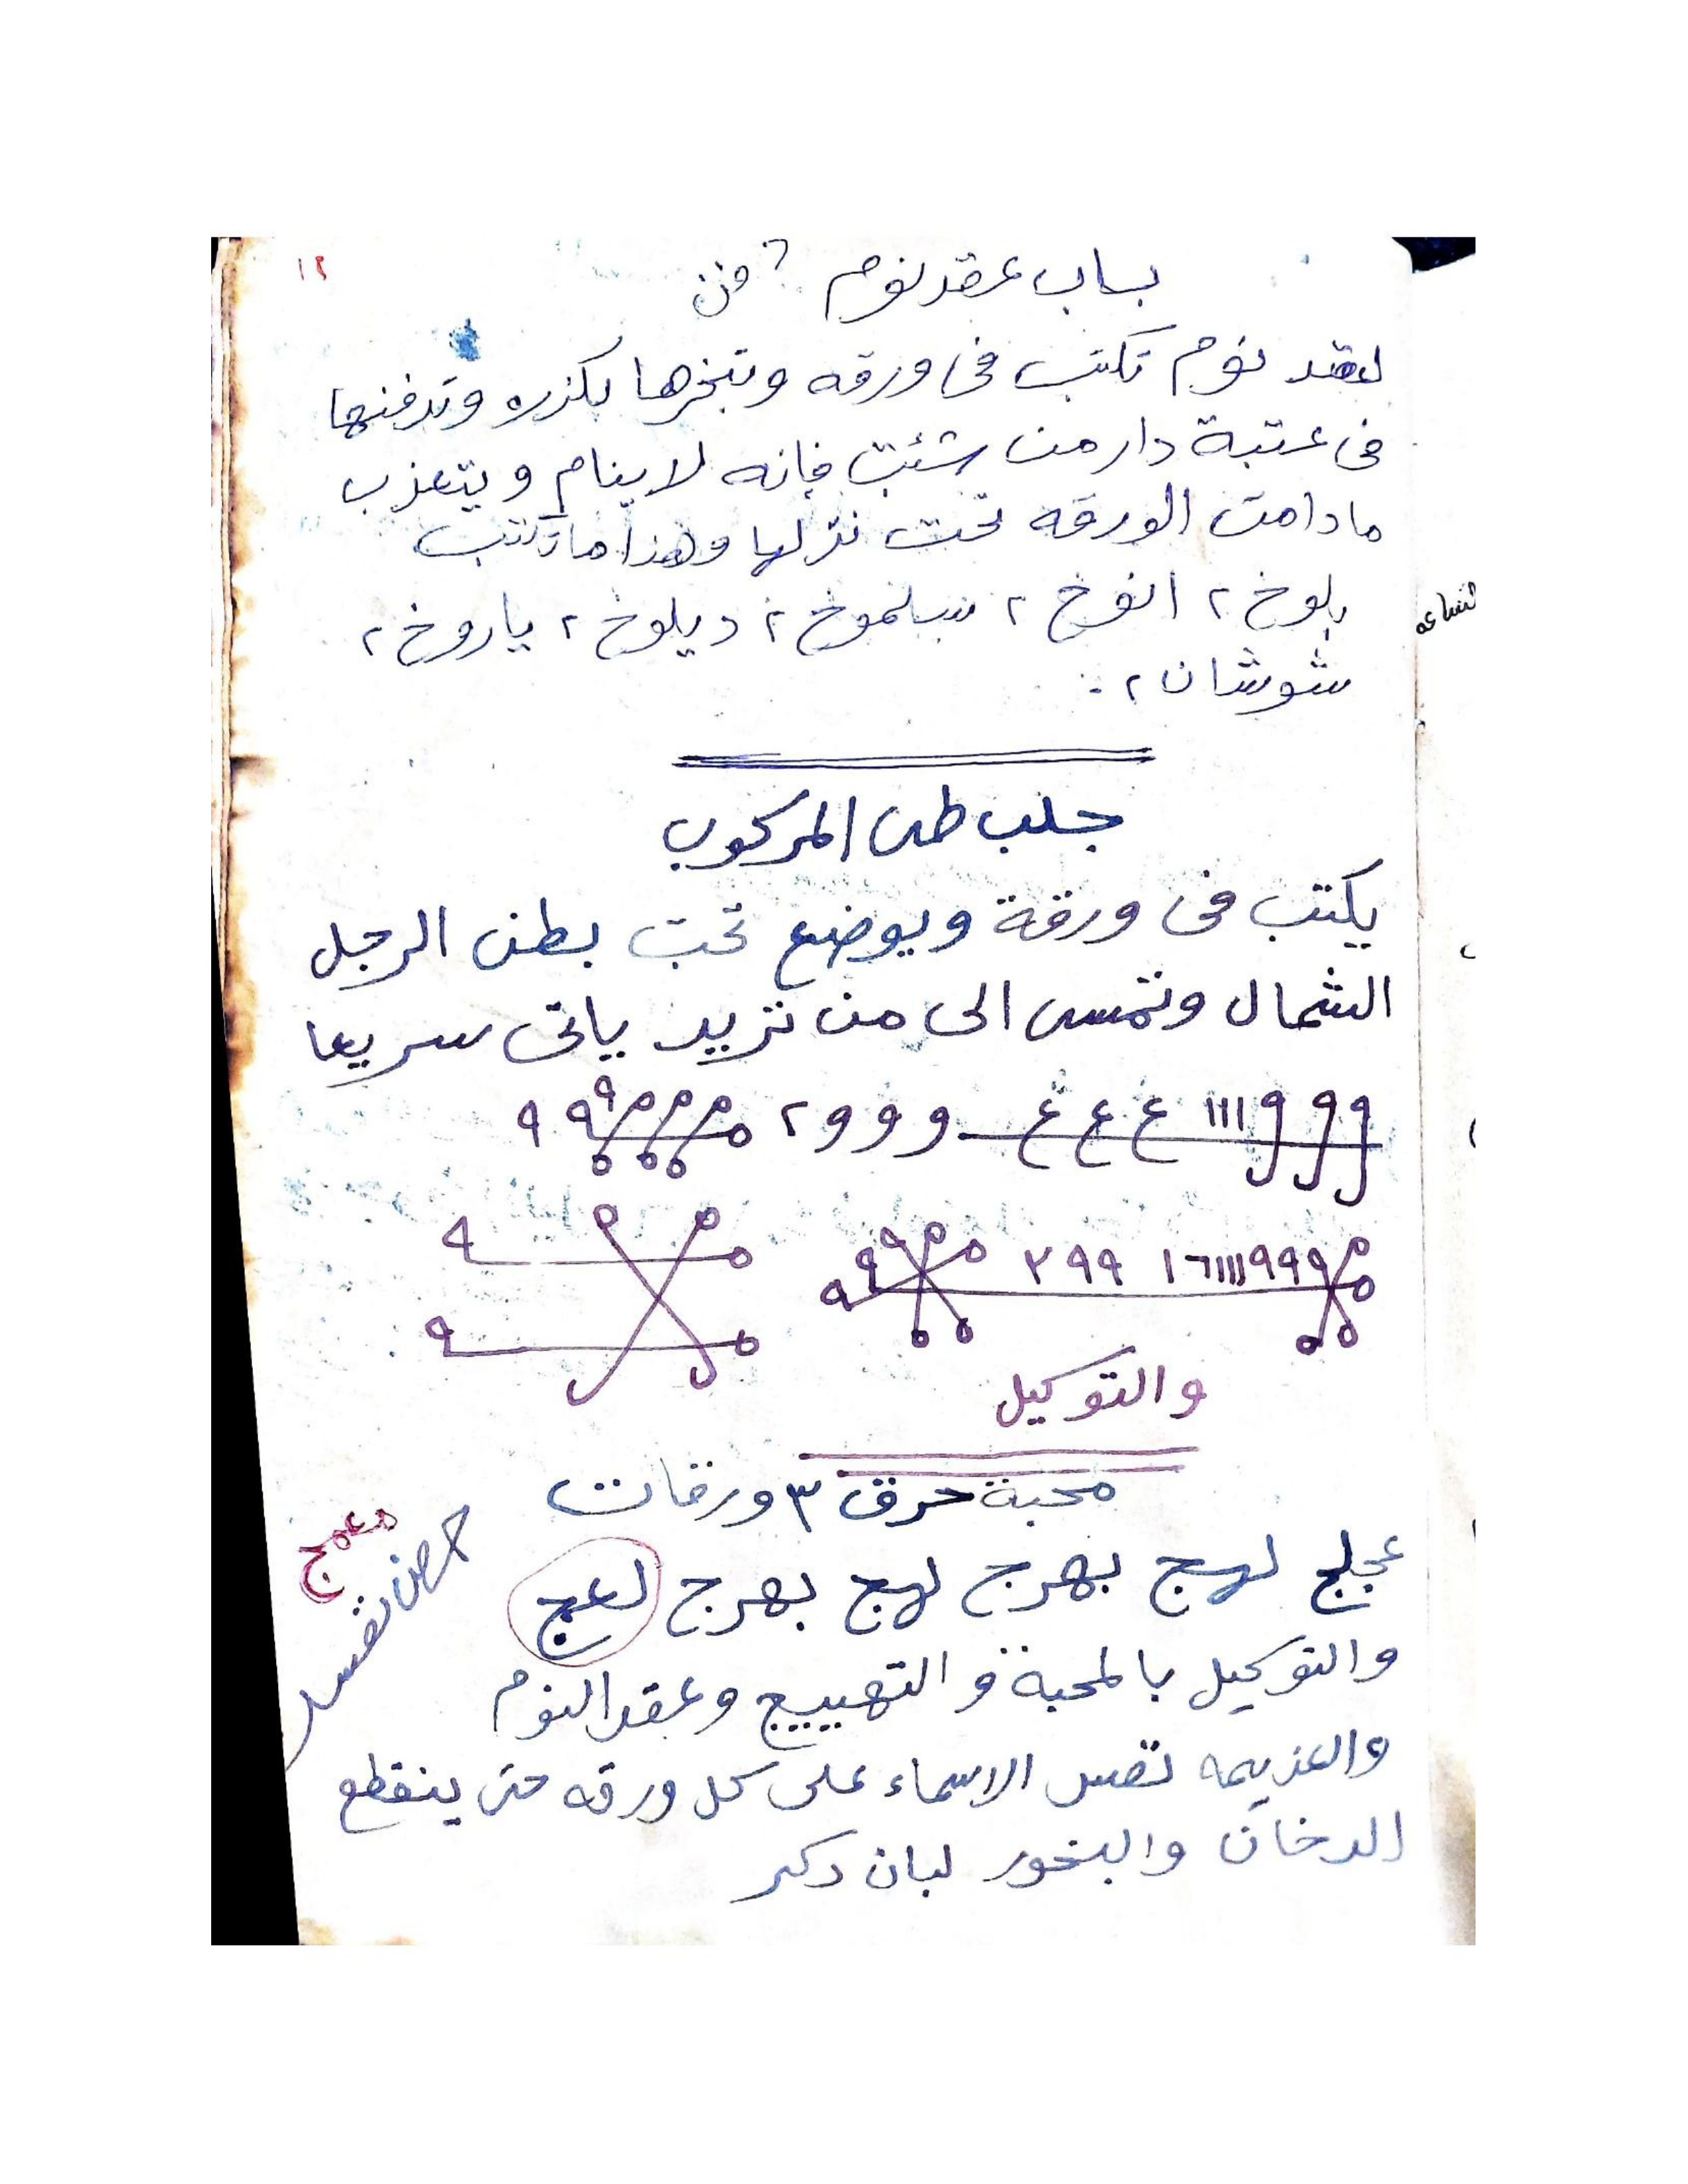 ١٢
باب عقد نوم
لعقد نوم تكتب فى ورقه وتبخرها بكزره وتدفنها
فى عتبة دار من شئت فإنه لا ينام ويتعزب
مادامت الورقه تحت نزلها وهذا ما تكتب
بلوخ ٢ انوخ ٢ سلموخ ٢ ديلوخ ٢ ياروخ ٢
شوشان ٢
جلب طى المركوب
يكتب فى ورقة ويوضع تحت بطن الرجل
الشمال وتمسى الى من تريد ياتى سريعا
ااا ع ع ع و و و ٢
١٦ااا٩٩٩ ٩٩ ٢
والتوكيل
محبة حرق ٣ ورقات
معمج
عجلج لهج بهرج لهج بهرج لعج
والتوكيل بالمحبة و التهييج وعقد النوم
والعزيمه تقس الاسماء على كل ورقه حتى ينقطع
الدخان والبخور لبان دكر